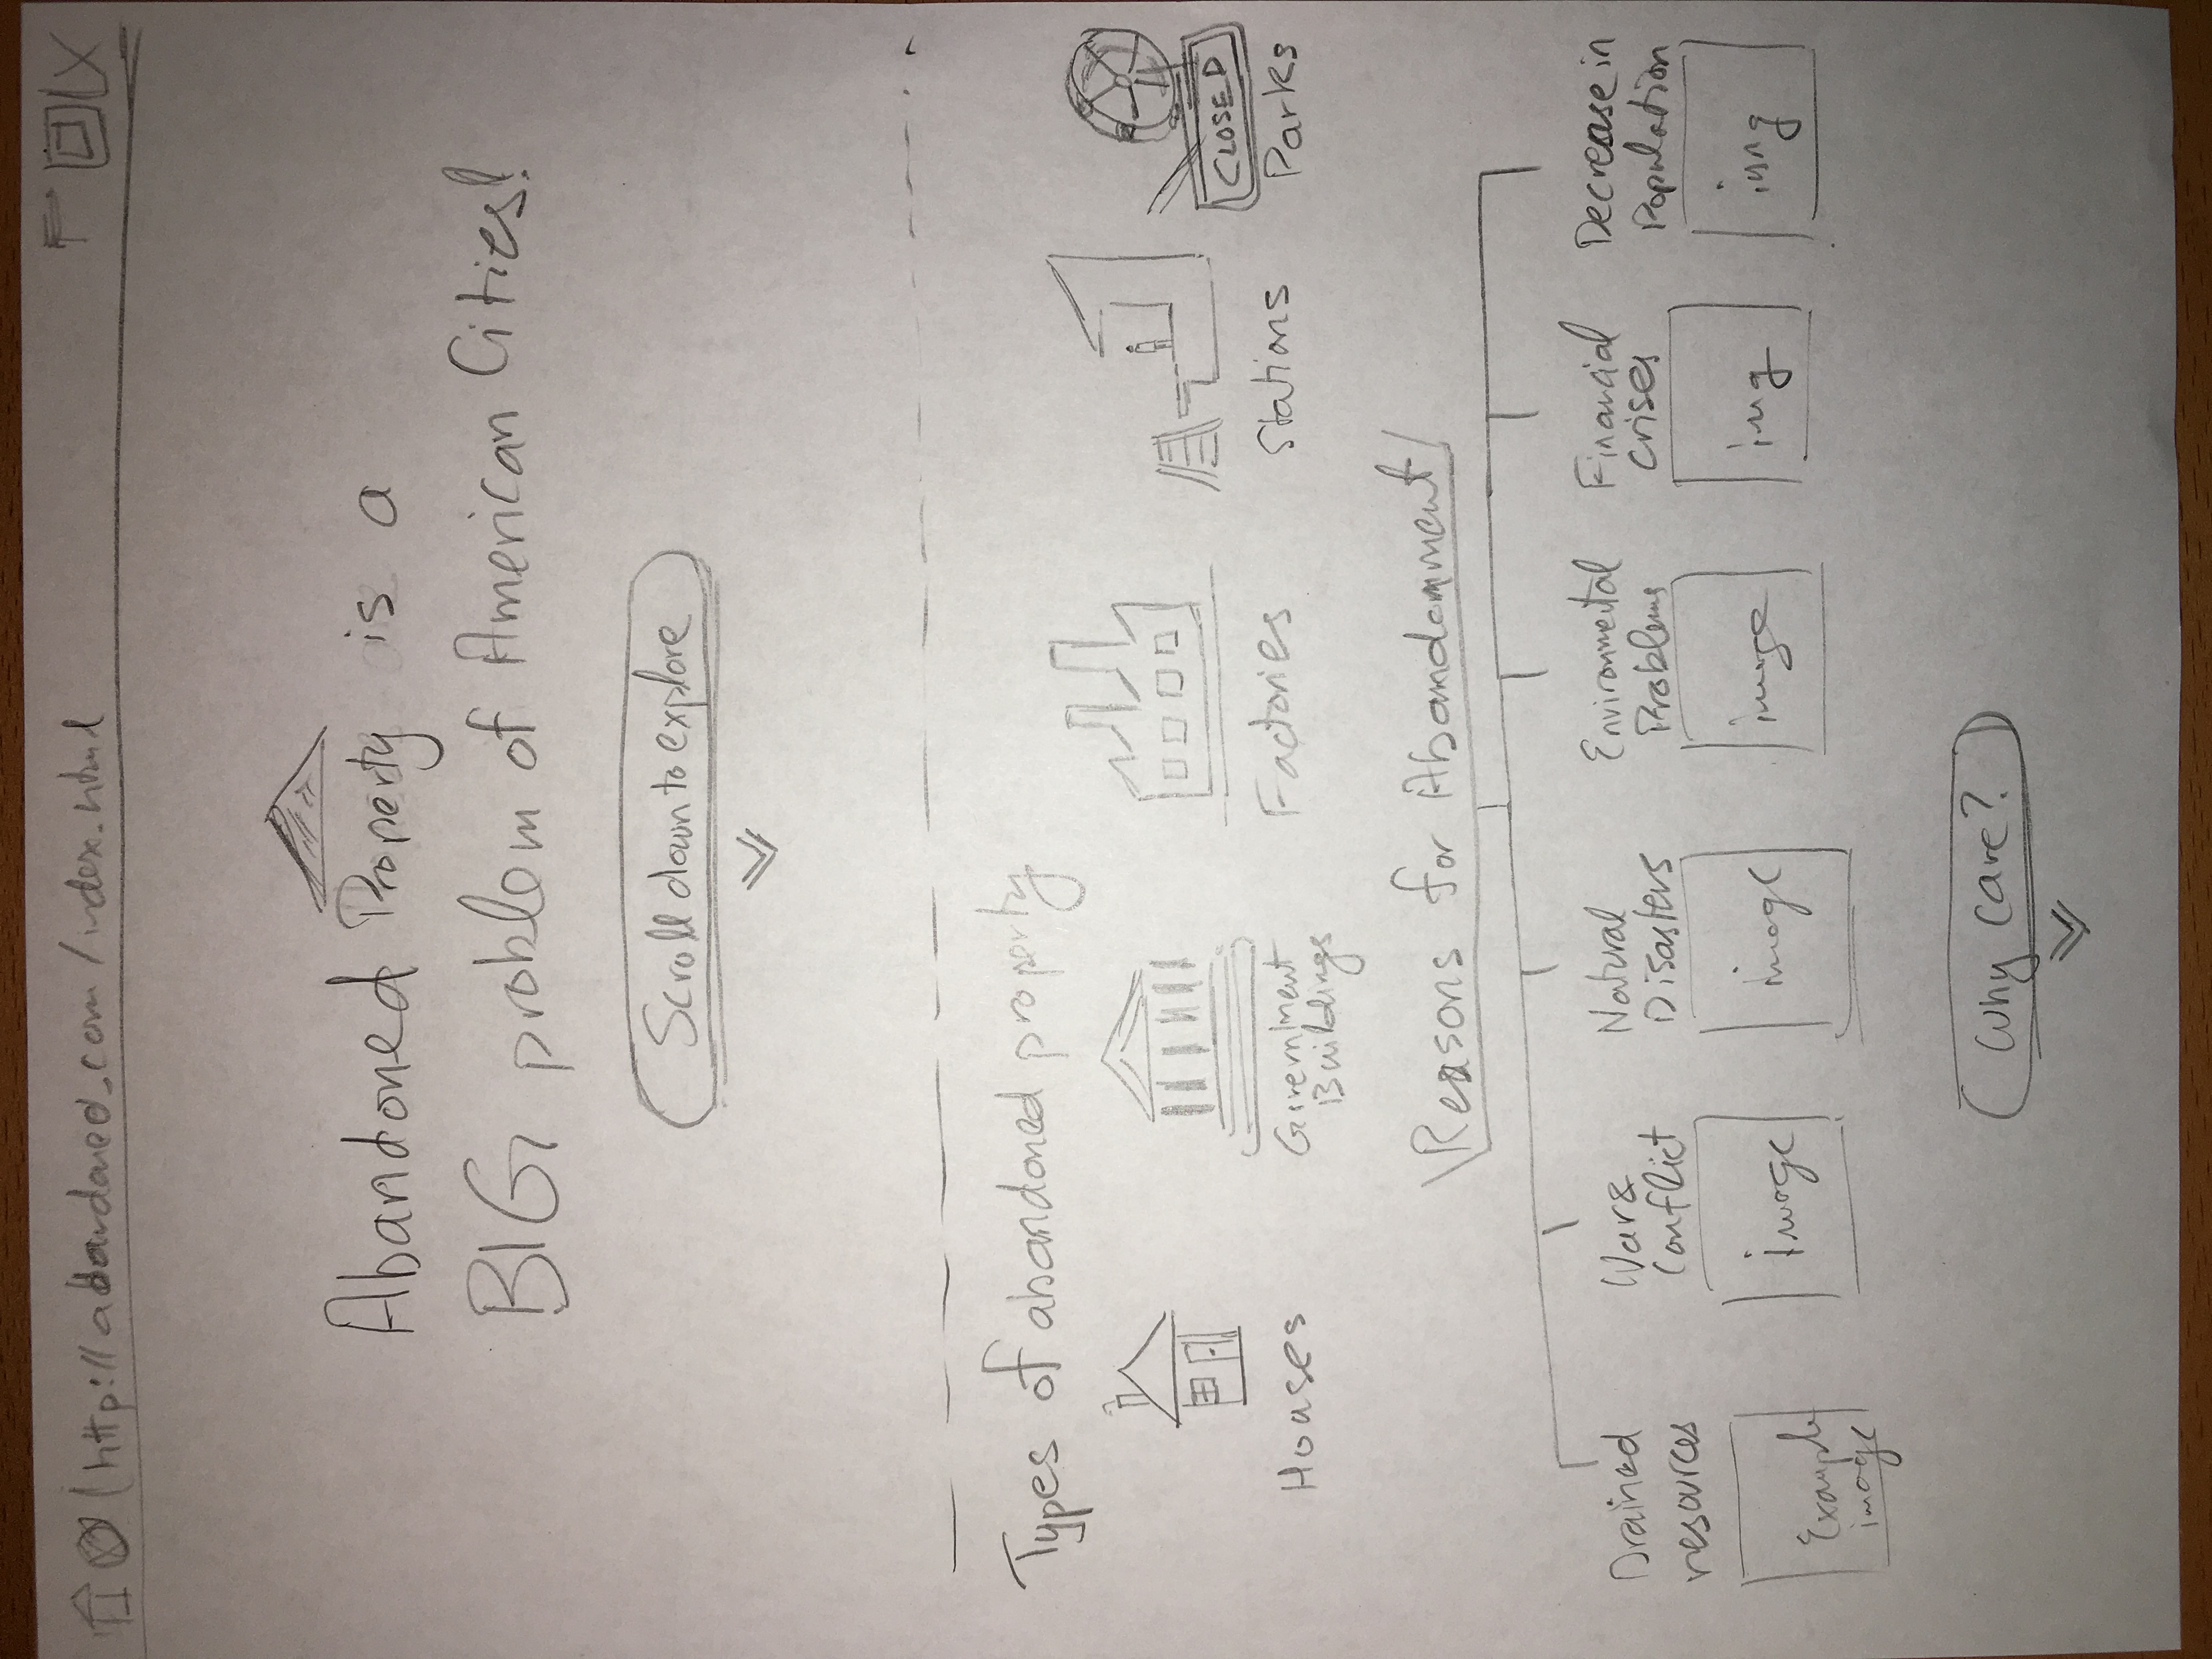 http://abandoned.com/index.html
Abandoned Property is a
BIG problem of American Cities!
Scroll down to explore
Types of abandoned property
CLOSED
Houses
Government
Buildings
Factories
Stations
Parks
Reasons for Abandonment
Drained
resources
War &
Conflict
Natural
Disasters
Environmental
Problems
Financial
crises
Decrease in
Population
Example
image
image
image
image
img
img
Why care?